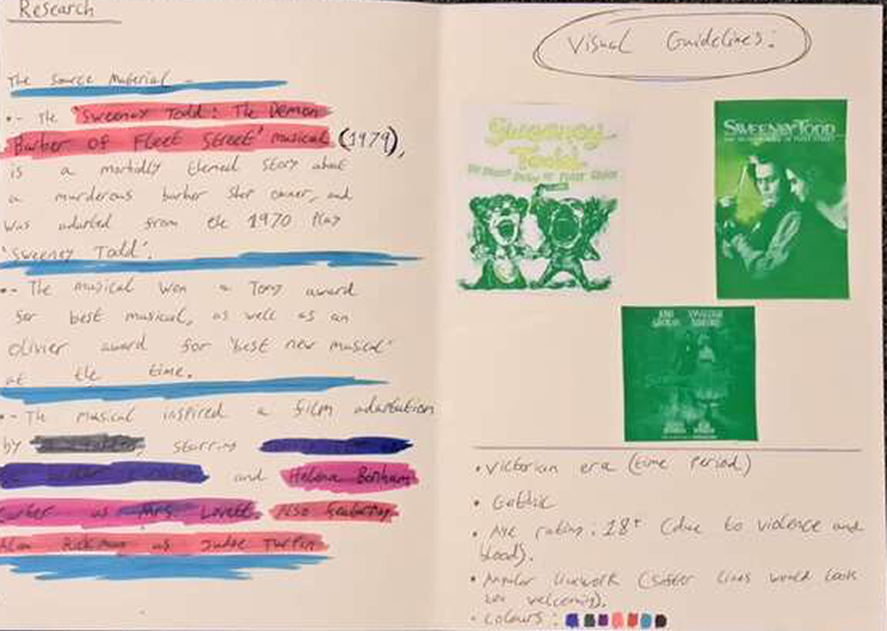 Research
The Source Material -
•- The 'Sweeney Todd: The Demon
Barber of Fleet Street' musical (1979),
is a morbidly themed story about
a murderous barber shop owner, and
was adapted from the 1970 play
'Sweeney Todd'.
•- The musical won a Tony award
for best musical, as well as an
olivier award for 'best new musical'
at the time.
•- The musical inspired a film adaptation
by starring
and Helena Bonham
Carter as Mrs Lovett. Also featuring
Alan Rickman as Judge Turpin
Visual Guidelines:
Sweeney
Todd
SWEENEY TODD
• Victorian era (time period)
• Gothic
• Age rating: 18+ (due to violence and
blood).
• Angular linework (softer lines would look
too welcoming).
• Colours: